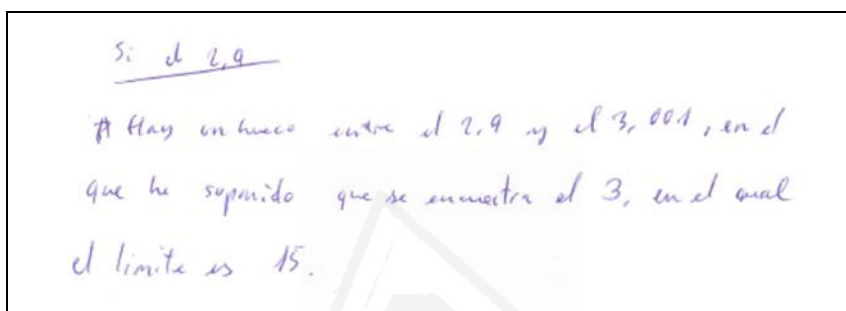 Si el 2,9
# Hay un hueco entre el 2.9 y el 3,001, en el
que he suponido que se encuentra el 3, en el cual
el limite es 15.